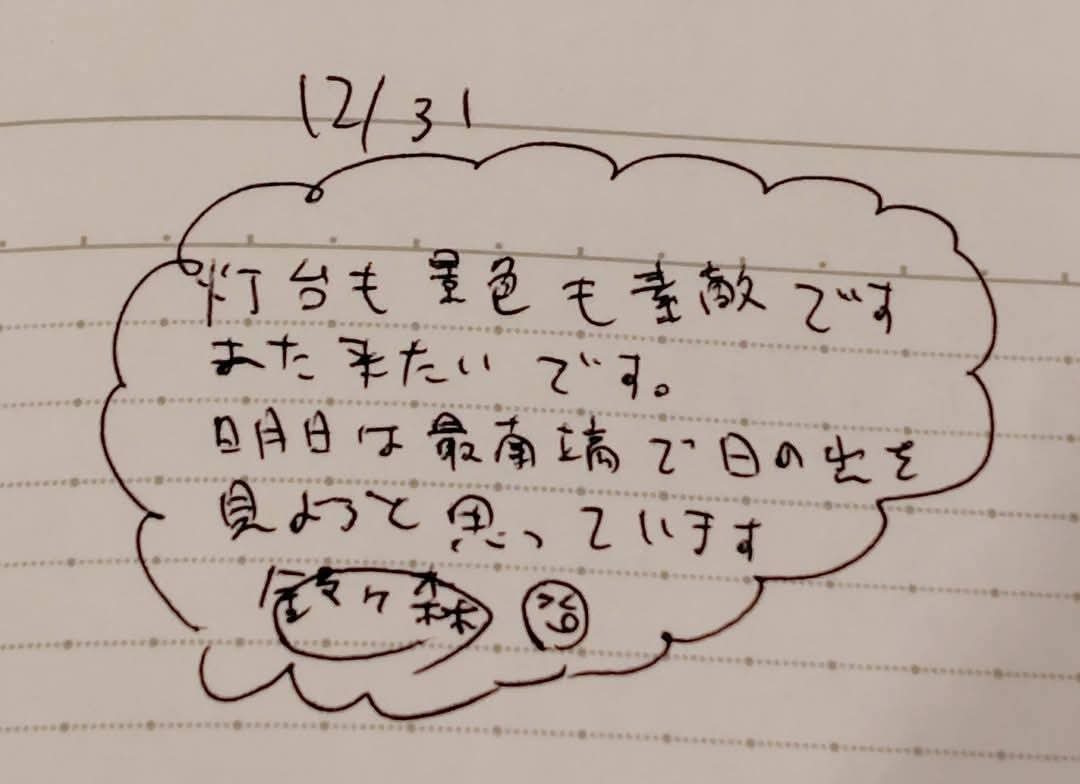 12/31
灯台も景色も素敵です
また来たいです。
明日は最南端で日の出を
見ようと思っています